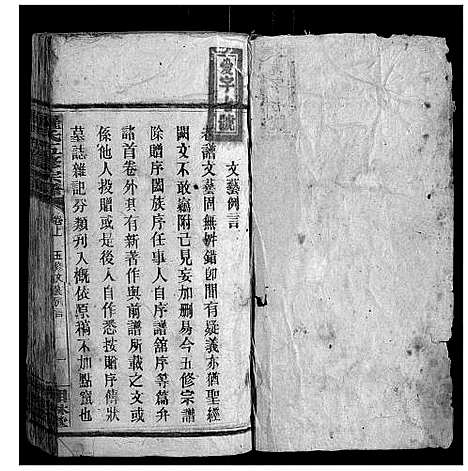 愛字 號
文藝例言
老譜文藝固無舛錯卽間有疑義亦猶聖經
闕文不敢臆附己見妄加刪易今五修宗譜
除贈序國族序任事人自序譜舘序等篇弁
諸首卷外其有新著作與前譜所載之文或
係他人投贈或是後人自作悉按贈序傳狀
墓誌雜記分類刊入槪依原稿不加點竄也
卷上 五修文藝例言 一